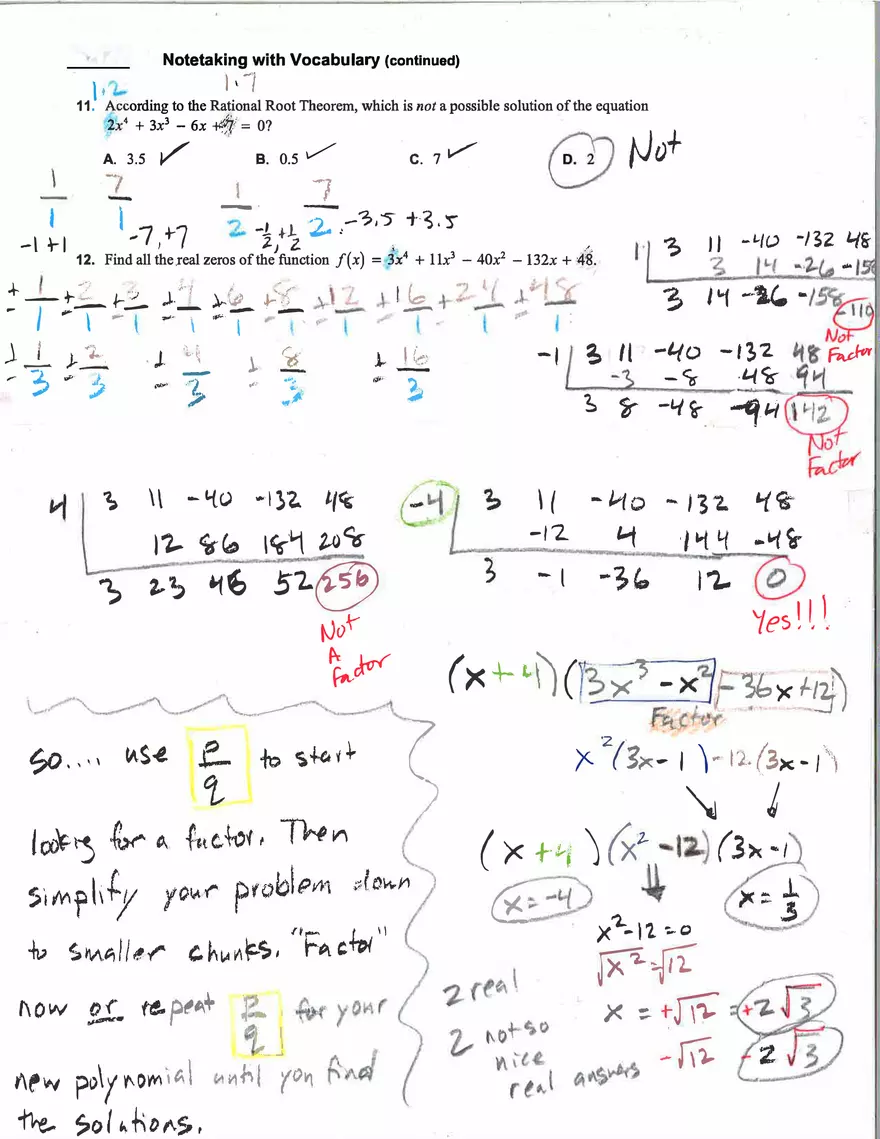 Notetaking with Vocabulary (continued)
1·2 1·7
11. According to the Rational Root Theorem, which is not a possible solution of the equation
2x⁴ + 3x³ − 6x + 7 = 0?
A. 3.5 ✓ B. 0.5 ✓ C. 7 ✓ D. 2 Not
1/1 7/1 1/2 7/2
-1 +1 -7,+7 -1/2, +1/2 -3,5 +3.5
12. Find all the real zeros of the function f(x) = 3x⁴ + 11x³ − 40x² − 132x + 48.
±1/1 ±2/1 ±3/1 ±4/1 ±6/1 ±8/1 ±12/1 ±16/1 ±24/1 ±48/1
±1/3 ±2/3 ±4/3 ±8/3 ±16/3
1 | 3 11 -40 -132 48
3 14 -26 -158
3 14 -26 -158 -110
Not
Factor
-1 | 3 11 -40 -132 48
-3 -8 48 94
3 8 -48 -94 142
Not
Factor
4 | 3 11 -40 -132 48
12 86 184 208
3 23 46 52 256
Not
A
Factor
-4 | 3 11 -40 -132 48
-12 4 144 -48
3 -1 -36 12 0
Yes!!!
(x+4)(3x³-x²-36x+12)
Factor
x²(3x-1)-12(3x-1)
(x+4)(x²-12)(3x-1)
x=-4 x=1/3
x²-12=0
√x²=√12
x = +√12 = +2√3
-√12 -2√3
2 real
2 not so
nice
real answers
So.... use p/q to start
lookig for a factor. Then
simplify your problem down
to smaller chunks. "Factor"
now or repeat p/q for your
new polynomial until you find
the solutions.